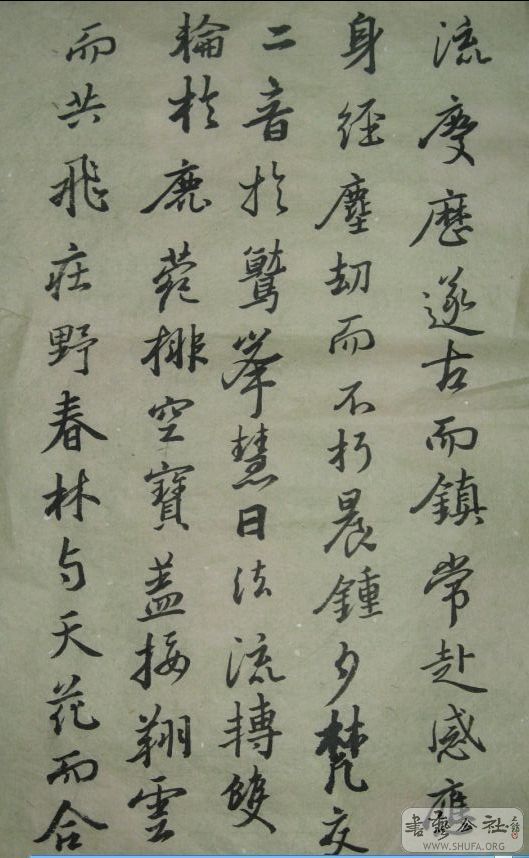 流慶歷遂古而鎮常赴感應
身經塵劫而不朽晨鍾夕梵交
二音於鷲峯慧日法流轉雙
輪於鹿菀排空寶蓋接翔雲
而共飛莊野春林与天花而合
書藝公社
WWW.SHUFA.ORG